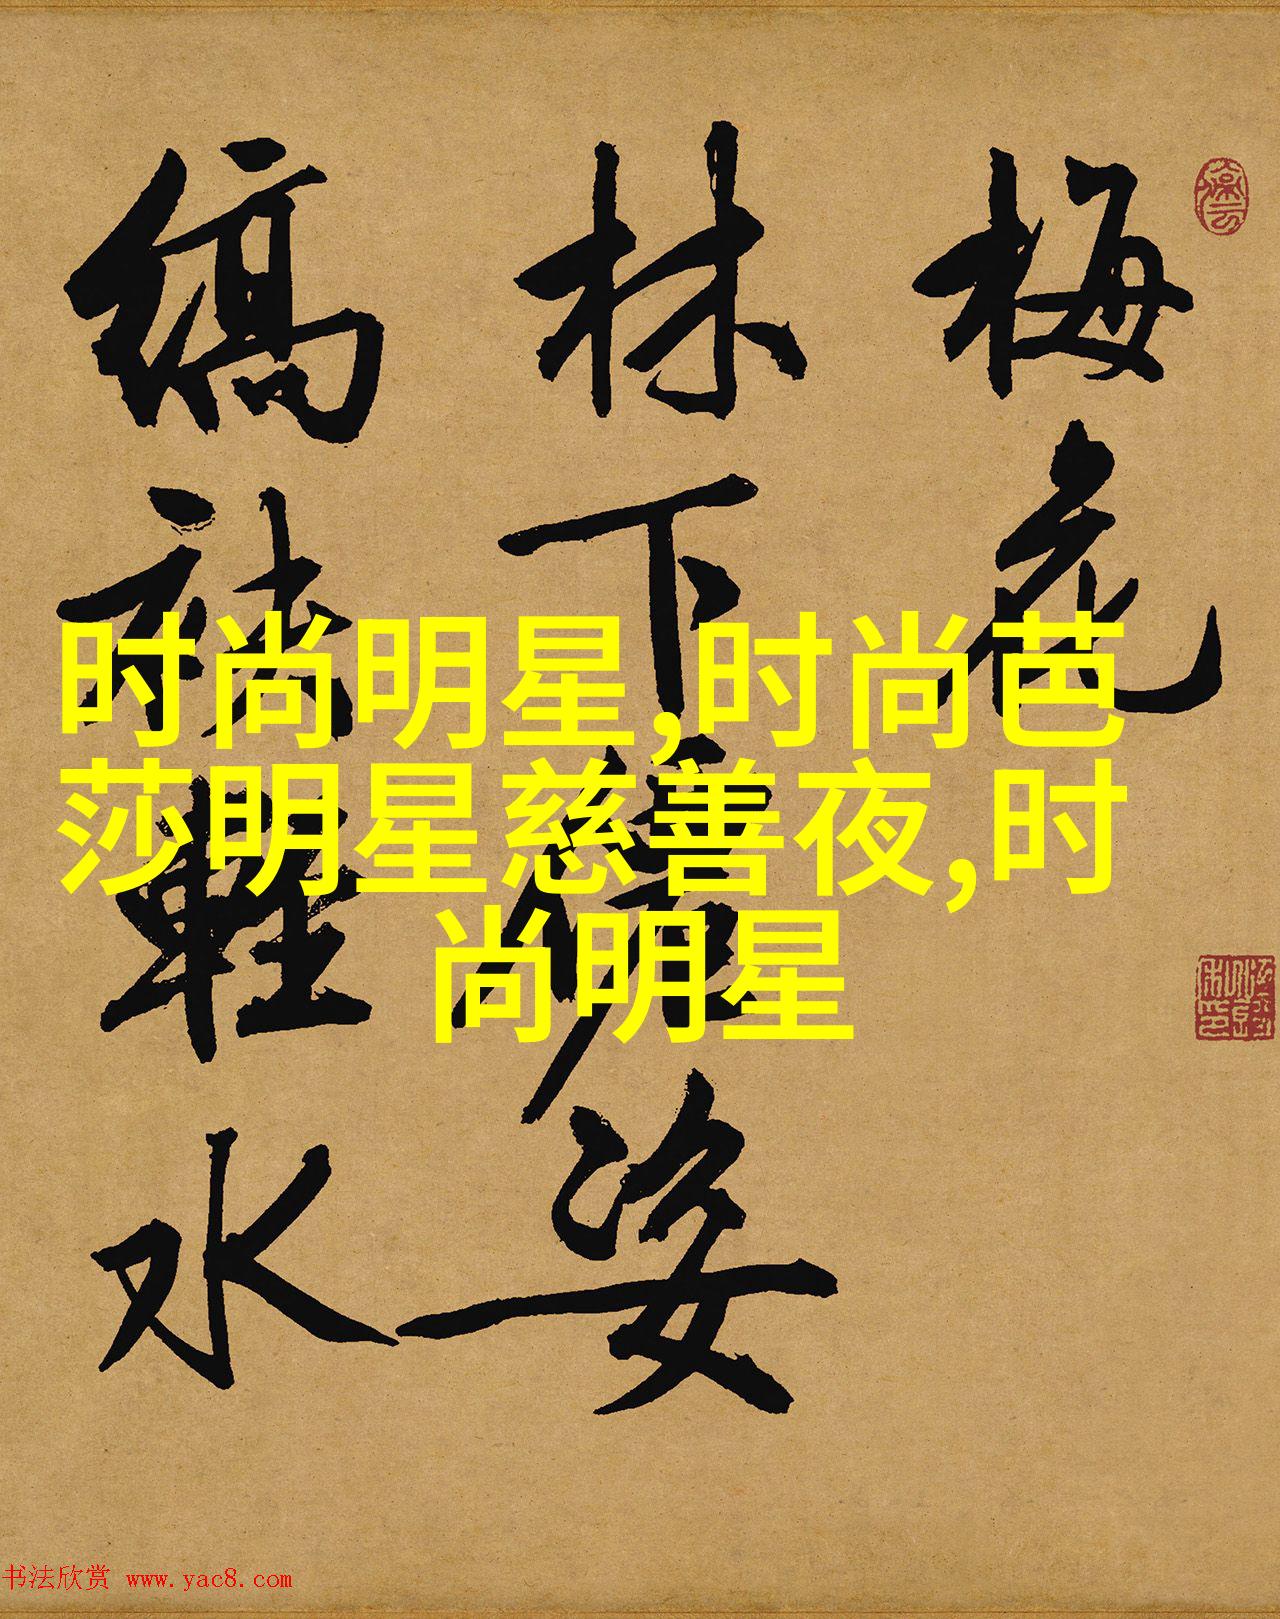 梅花
林下傳姿
縞袂輕水
时尚明星,时尚芭
莎明星慈善夜,时
尚明星
书法欣赏 www.yac8.com